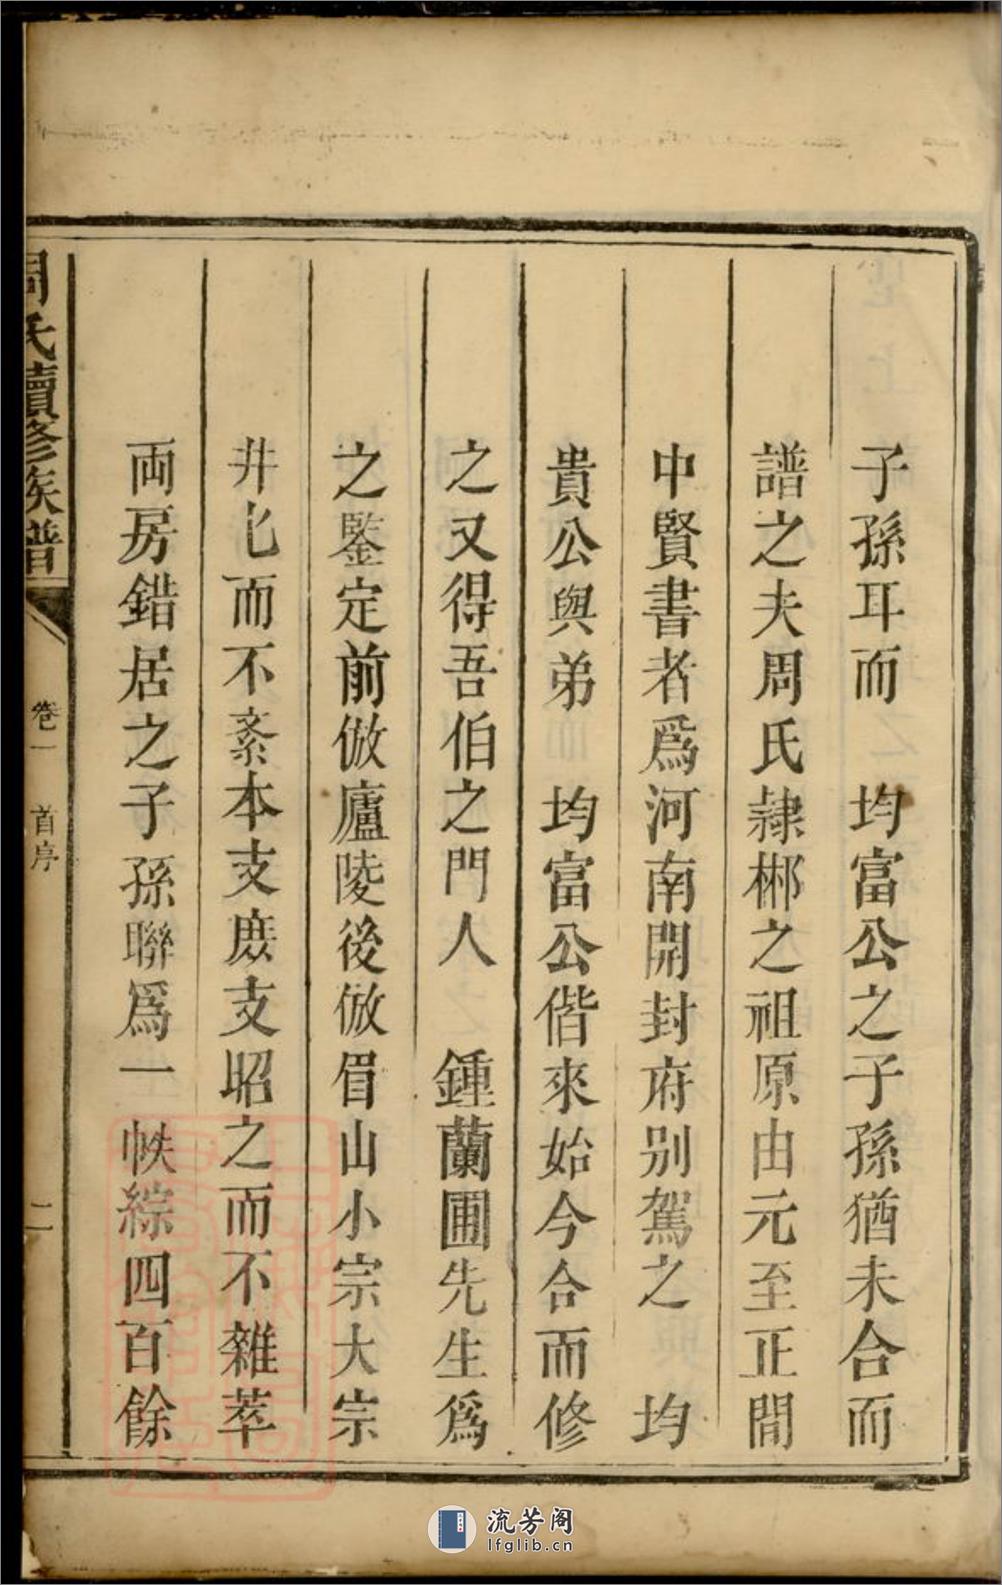 子孫耳而　均富公之子孫猶未合而
譜之夫周氏隷郴之祖原由元至正間
中賢書者爲河南開封府别駕之　均
貴公與弟　均富公偕來始今合而修
之又得吾伯之門人　鍾蘭圃先生爲
之鍳定前倣廬陵後倣眉山小宗大宗
井匕而不紊本支庻支昭之而不雜萃
両房錯居之子孫聯爲一帙綜四百餘
周氏續修族譜
卷一　首序
二
流芳阁
lfglib.cn